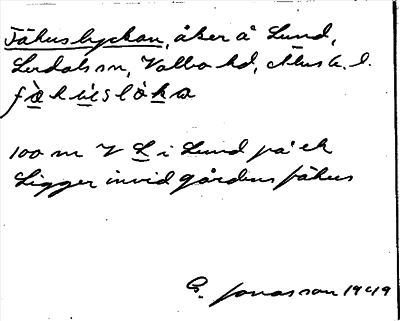 Fähuslyckan, åker å Lund,
Lerdals sn, Valbo hd, Älvsb. l.
fä̀húsl​ò̀ka
100 m V L i Lund på ek
Ligger invid gårdens fähus
G. Jonasson 1949